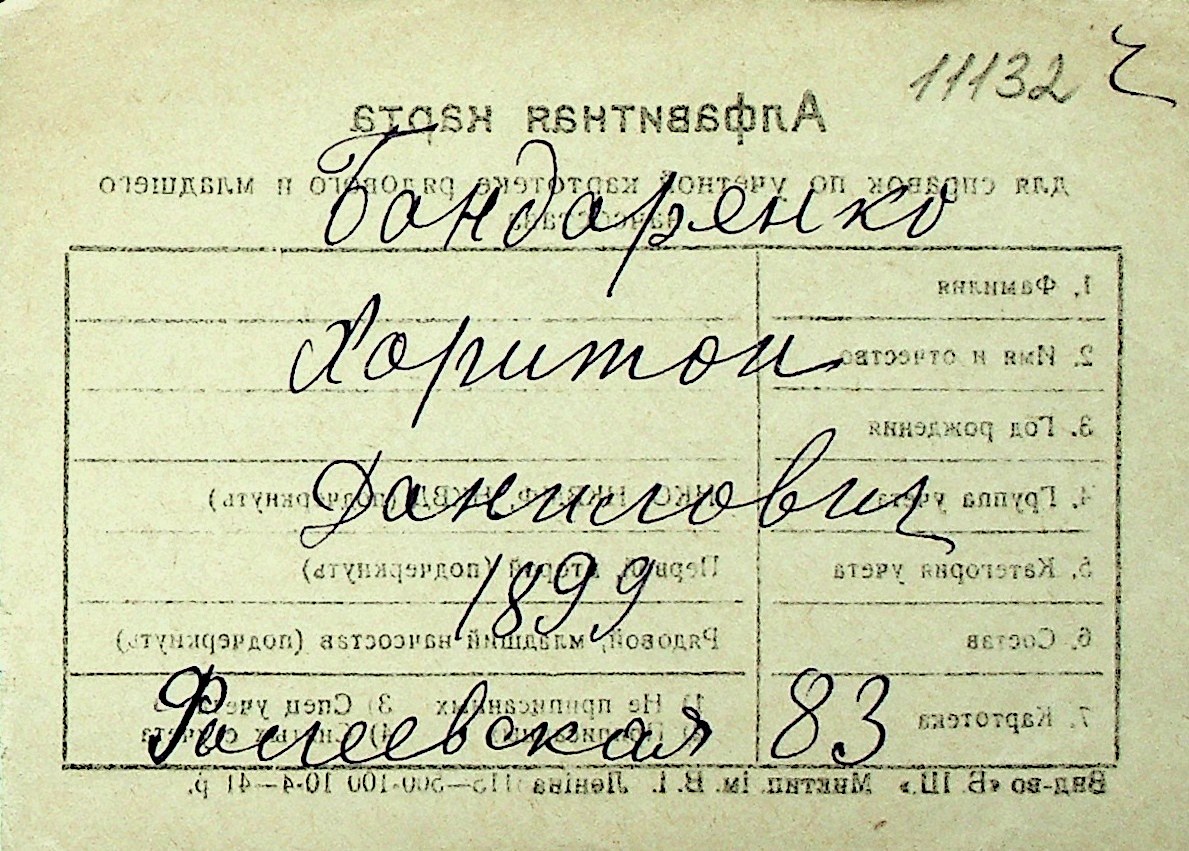 11132 Ч
Алфавитная карта
Бондаренко
для справок по учетной картотеке рядового и младшего
начсостава
1. Фамилия
Харитон
2. Имя и отчество
3. Год рождения
Данилович
4. Группа учета НКО, НКВМФ, НКВД (подчеркнуть)
1899
5. Категория учета Первой, второй (подчеркнуть)
6. Состав Рядовой, младший начсостав (подчеркнуть)
83
7. Картотека 1) Не приписанных 3) Спец учета
Вид-во «Б. Ш.» Миктип. ім. В. І. Леніна 10-4—41 р.